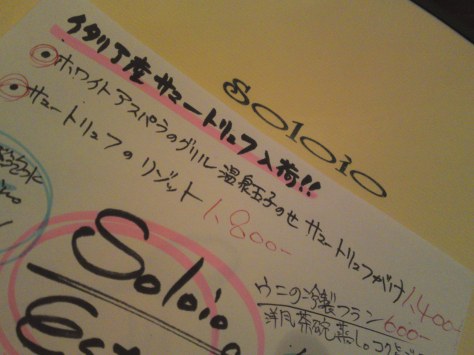 soloio
イタリア産サマートリュフ入荷!!
ホワイトアスパラのグリル 温泉玉子のせ サマートリュフがけ 1,400-
サマートリュフのリゾット 1,800-
Soloio
ウニの冷製フラン 600-
洋風茶碗蒸し。コクと